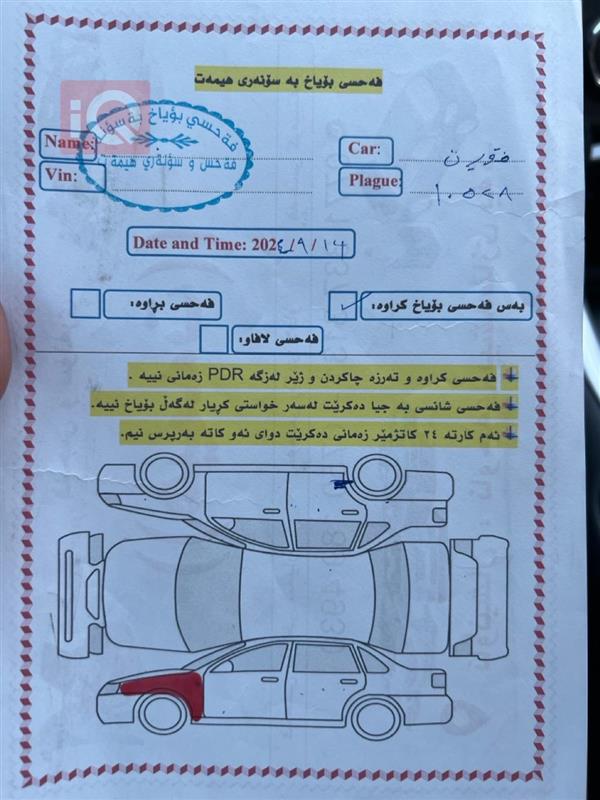 فەحسی بۆیاخ بە سۆنەری هیمەت
iQ
فەحسي بۆیاخ بە سۆنە
فەحس و سۆنەري هیمەت
Name:
Vin:
Car:
Plague: ١٠٥٢٨
Date and Time: 202٤/٩/١٤
بەس فەحسی بۆیاخ کراوە:
فەحسی بڕاوە:
فەحسی لافاو:
فەحسی کراوە و تەرزە چاکردن و ژێر لەزگە PDR زەمانی نییە .
فەحسی شانسی بە جیا دەکرێت لەسەر خواستی کڕیار لەگەڵ بۆیاخ نییە.
ئەم کارتە ٢٤ کاتژمێر زەمانی دەکرێت دوای ئەو کاتە بەرپرس نیم.